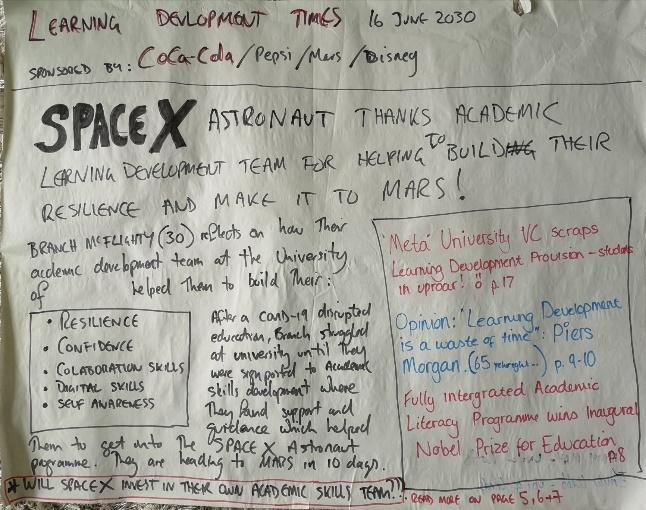 LEARNING DEVLOPMENT TIMES 16 JUNE 2030
SPONSORED BY: CocA-Cola/Pepsi/Mars/Disney
SPACEX ASTRONAUT THANKS ACADEMIC
LEARNING DEVELOPMENT TEAM FOR HELPING TO BUILD THEIR
RESILIENCE AND MAKE IT TO MARS!
BRANCH MCFLIGHTY (30) reflects on how Their
academic development team at the University
of helped Them to build Their:
• RESILIENCE
• CONFIDENCE
• COLABORATION SKILLS
• DIGITAL SKILLS
• SELF AWARENESS
After a covid-19 disrupted
education, Branch struggled
at university until They
were signposted to Academic
skills development where
They found support and
guidance which helped
Them to get into The SPACEX Astronaut
programme. They are heading to MARS in 10 days.
* WILL SPACEX INVEST IN THEIR OWN ACADEMIC SKILLS TEAM??
READ MORE ON PAGE 5,6+7
'Meta' University VC scraps
Learning Development Provision - students
in uproar! p.17
Opinion: 'Learning Development
is a waste of time': Piers
Morgan. (65 ...) p. 9-10
Fully Intergrated Academic
Literacy Programme wins Inaugural
Nobel Prize for Education
p8